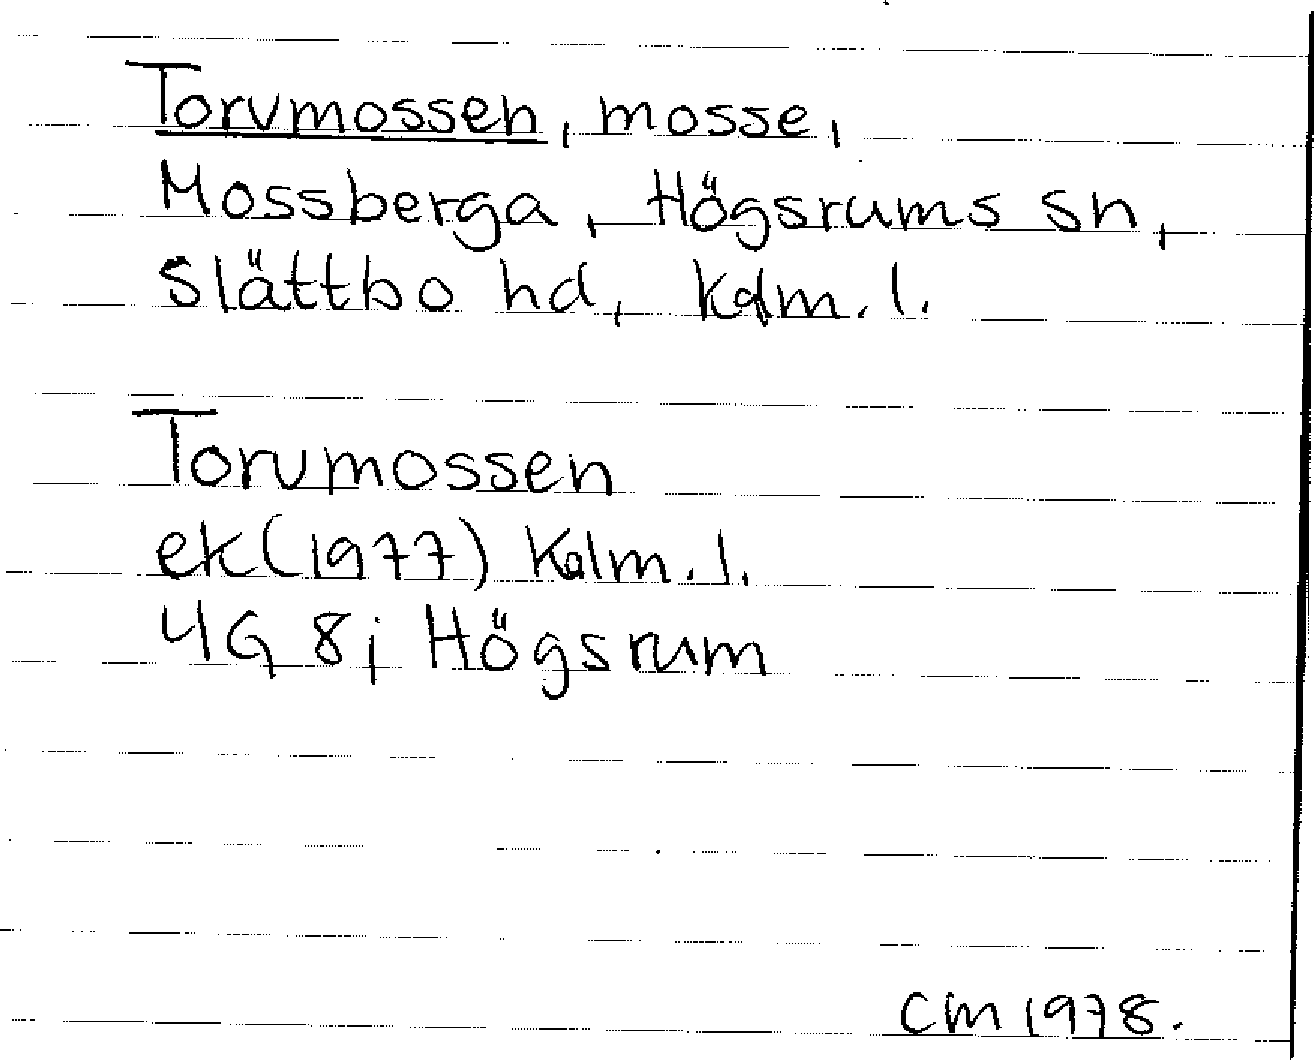 Torvmossen, mosse,
Mossberga, Högsrums sn,
Slättbo hd, Kalm. l.
Torvmossen
ek (1977) Kalm. l.
4G 8i Högsrum
CM 1978.